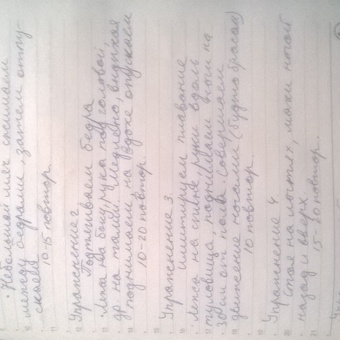 Небольшой мяч сжимаем
между бедрами, затем отпу-
скаем
10-15 повтор.
Упражнение 2
Подтягиваем бедра
Лежа на боку, рука под головой,
др. на талии. Медленно, вдыхая
поднимаем, на выдохе опускаем
10-20 повтор.
Упражнение 3
имитируем плавание
Лежа на животе, руки вдоль
туловища, поднимаем ноги на
30 см от пола совершаем
движение ногами (будто брасом)
10 повтор.
Упражнение 4
Стоя на локтях, махи ногой
назад и вверх
15-20 повтор.